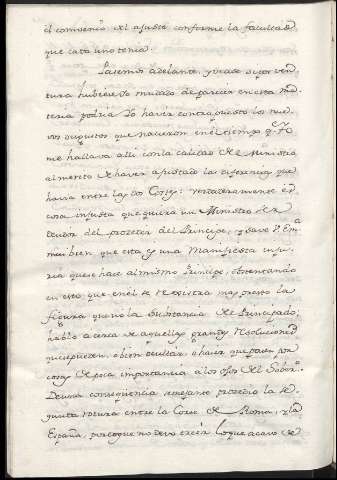 el convenio del ajuste conforme la facultad
que cada uno tenia.
Pasemos adelante, y
tura hubiese Yo mudado de parecer en esta ma
teria podria Yo haver contrapuesto los nue
vos disgustos que nacieron en el tiempo q.e Yo
me hallava alli con la calidad de Ministro
al merito de haver ajustado la diferencia que
havia entre las dos Cortes: verdaderamente es
cosa injusta que quiera un Ministro
del proceder del Principe, y save V. Em.a
mui bien que esta es una Manifiesta inju
ria que se hace al mismo Principe, obstentando
en esto que en el se rexistra mas presto la
figura que no la sustancia del Principado;
hablo a cerca de aquellas grandes Resoluciones
que se pueden, o bien ocultar, o hacer que pasen por
cosas de poca importancia a los ojos del Sober.o
De una consequencia semejante procedio la se
gunda rotura entre la Corte de Roma, y la
España, por lo que no devo creer lo que acavo de